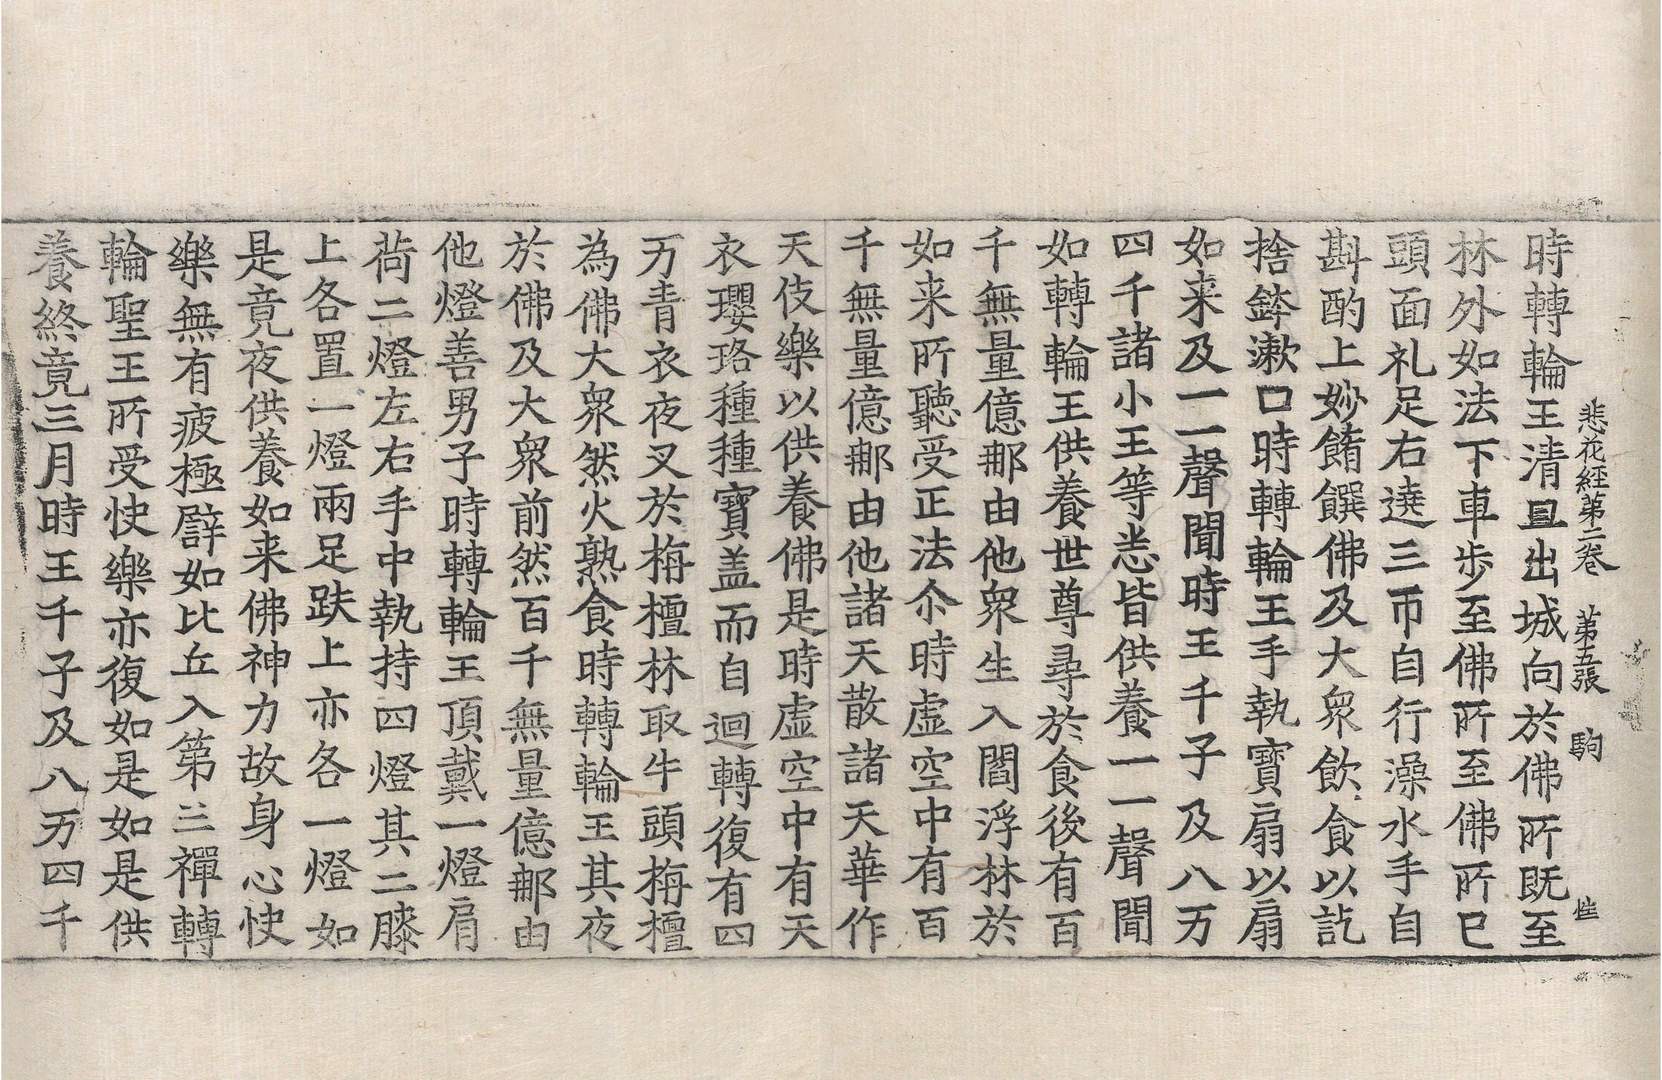 悲花経第二卷 第五張 駒
時轉輪王清旦出城向於佛所既至
林外如法下車歩至佛所至佛所已
頭面礼足右遶三帀自行澡水手自
斟酌上妙餚饌佛及大衆飲食以訖
捨鉢漱口時轉輪王手執寳扇以扇
如来及一一聲聞時王千子及八万
四千諸小王等悉皆供養一一聲聞
如轉輪王供養世尊尋於食後有百
千無量億那由他衆生入閻浮林於
如来所聽受正法尒時虚空中有百
千無量億那由他諸天散諸天華作
天伎樂以供養佛是時虚空中有天
衣瓔珞種種寳盖而自迴轉復有四
万青衣夜叉於栴檀林取牛頭栴檀
為佛大衆然火熟食時轉輪王其夜
於佛及大衆前然百千無量億那由
他燈善男子時轉輪王頂戴一燈肩
荷二燈左右手中執持四燈其二膝
上各置一燈兩足趺上亦各一燈如
是竟夜供養如来佛神力故身心快
樂無有疲極譬如比丘入第三禪轉
輪聖王所受快樂亦復如是如是供
養終竟三月時王千子及八万四千